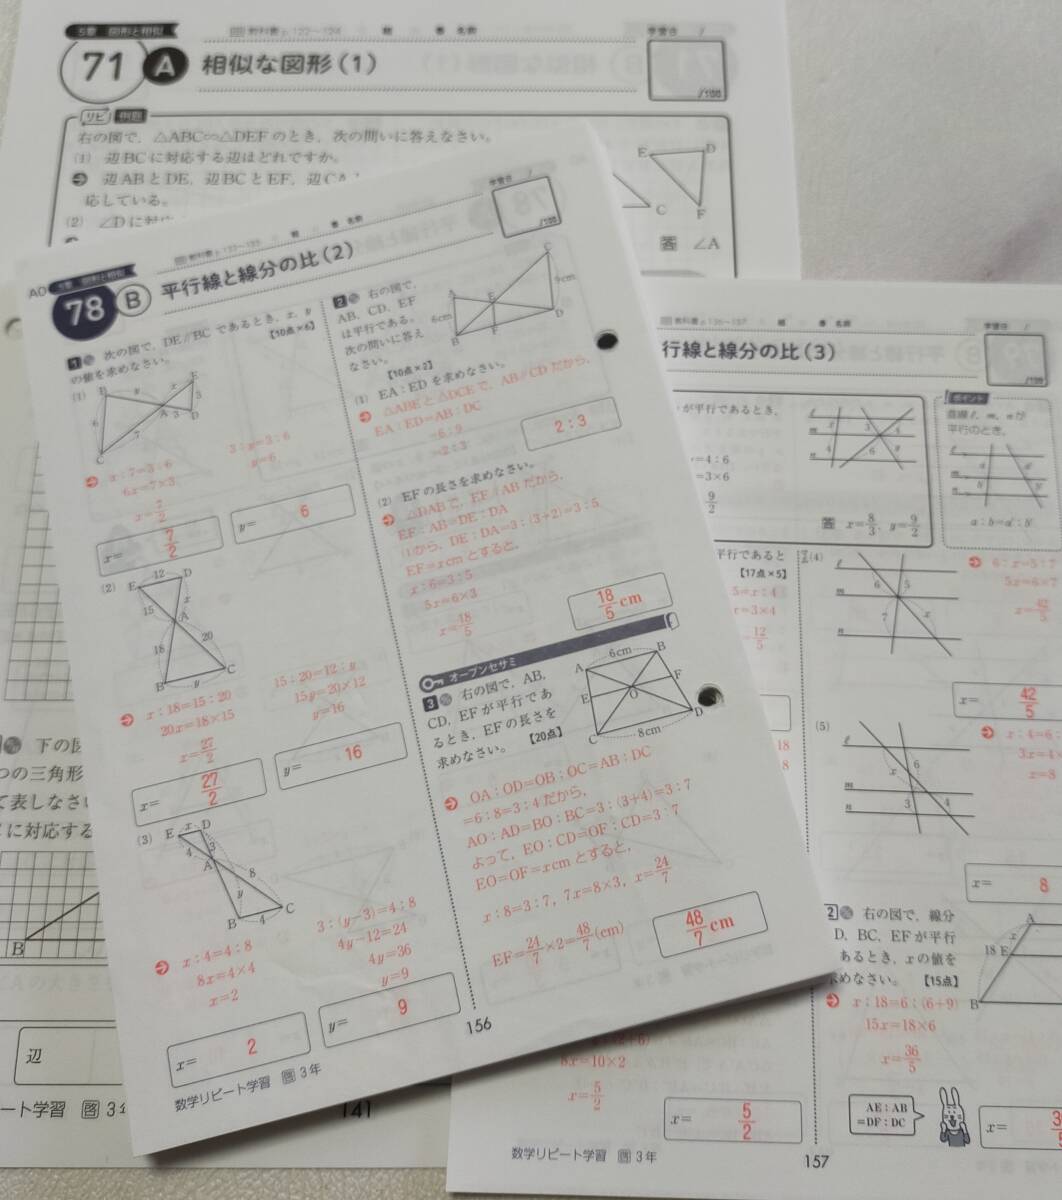 5章 図形と相似
71 A 相似な図形(1)
教科書 p.122~124 組 番 名前
学習日 /
/100
リピ 例題
右の図で,△ABC∽△DEFのとき,次の問いに答えなさい。
(1) 辺BCに対応する辺はどれですか。
辺ABとDE,辺BCとEF,辺CA
応している。
(2) ∠Dに対応
E D
C F
答 ∠A
78 B 平行線と線分の比(2)
組 番 名前
学習日 /
/100
1 次の図で,DE∥BCであるとき,x,y
の値を求めなさい。 【10点×6】
(1)
x:7=3:6
6x=7×3
x=7/2
3:x=3:6
y=6
x= 7/2
y= 6
(2)
E 12 D
15 x
A
18 20
B y C
x:18=15:20
20x=18×15
x=27/2
15:20=12:y
15y=20×12
y=16
x= 27/2
y= 16
(3)
E x D
4 3
A 8
y
B 4 C
x:4=4:8
8x=4×4
x=2
3:(y-3)=4:8
4y-12=24
4y=36
y=9
x= 2
y= 9
数学リピート学習 啓3年
2 右の図で,
AB,CD,EF
は平行である。
次の問いに答え
なさい。
【10点×2】
A E C
6cm 9cm
B F D
(1) EA:EDを求めなさい。
△ABEと△DCEで,AB∥CDだから,
EA:ED=AB:DC
=6:9
=2:3
2:3
(2) EFの長さを求めなさい。
△DABで,EF∥ABだから,
EF:AB=DE:DA
(1)から,DE:DA=3:(3+2)=3:5
EF=xcmとすると,
x:6=3:5
5x=6×3
x=18/5
18/5 cm
オープンセサミ
3 右の図で,AB,
CD,EFが平行であ
るとき,EFの長さを
求めなさい。 【20点】
A 6cm B
E O F
C 8cm D
OA:OD=OB:OC=AB:DC
=6:8=3:4だから,
AO:AD=BO:BC=3:(3+4)=3:7
よって,EO:CD=OF:CD=3:7
EO=OF=xcmとすると,
x:8=3:7,7x=8×3,x=24/7
EF=24/7×2=48/7(cm)
48/7 cm
156
教科書 p.136~137 組 番 名前
学習日 /
/100
行線と線分の比(3)
が平行であるとき,
=4:6
=3×6
9/2
答 x=8/3,y=9/2
ポイント
直線ℓ,m,nが
平行のとき,
a:b=a':b'
平行であると
【17点×5】
5=x:4
x=3×4
12/5
(4)
6:x=5:7
5x=6×7
x=42/5
x= 42/5
(5)
x:4=6:
3x=4×
x=8
x= 8
2 右の図で,線分
D,BC,EFが平行
あるとき,xの値を
求めなさい。 【15点】
A
x
18 E
B
x:18=6:(6+9)
15x=18×6
x=36/5
AE:AB
=DF:DC
x=
8x=10×2
x=5/2
x= 5/2
数学リピート学習 啓3年
157
下の図
つの三角形
て表しなさい
に対応する
B
辺
ート学習 啓3年
141